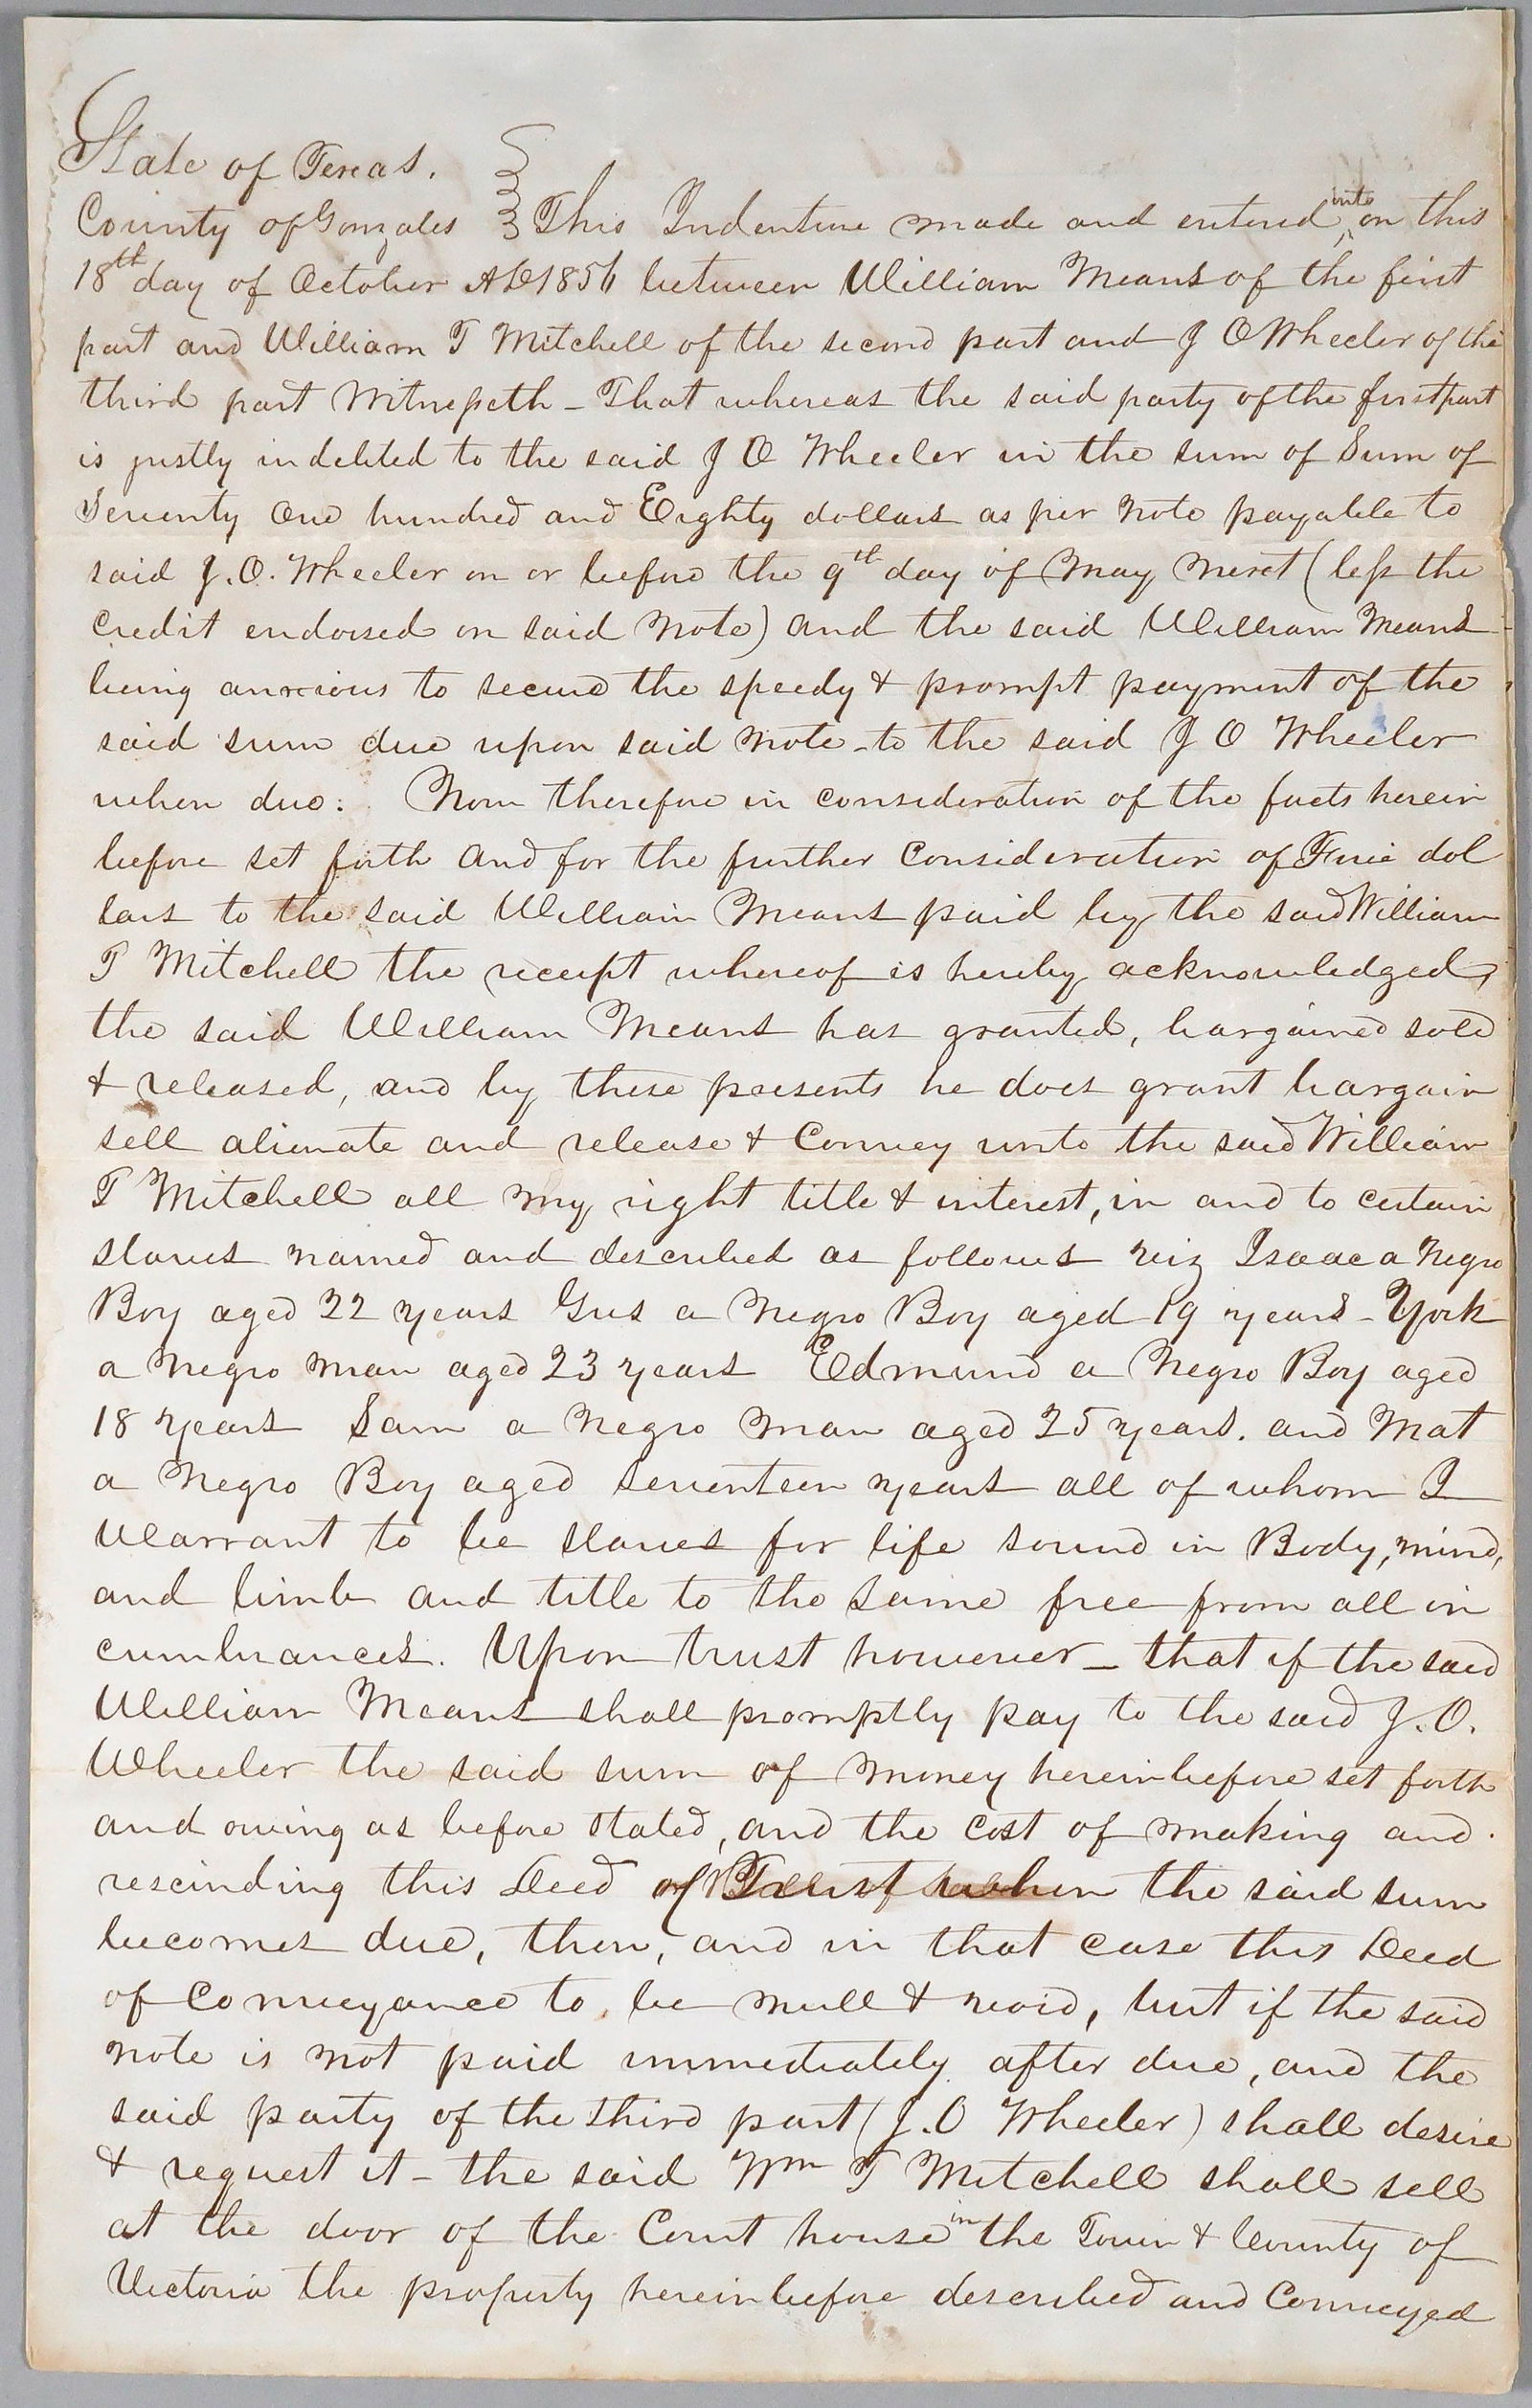 State of Texas.
County of Gonzales This Indenture made and entered into on this
18th day of October AD 1856 between William Means of the first
part and William T Mitchell of the second part and J O Wheeler of the
third part Witnesseth - That whereas the said party of the first part
is justly indebted to the said J O Wheeler in the sum of Sum of
Seventy One hundred and Eighty dollars as per note payable to
said J. O. Wheeler on or before the 9th day of May next (less the
credit endorsed on said note) and the said William Means
being anxious to secure the speedy & prompt payment of the
said sum due upon said note - to the said J O Wheeler
when due. Now therefore in consideration of the facts herein
before set forth and for the further Consideration of Five dol
lars to the said William Means paid by the said William
T Mitchell the receipt whereof is hereby acknowledged,
the said William Means has granted, bargained sold
& released, and by these presents he does grant bargain
sell alienate and release & Convey unto the said William
T Mitchell all my right title & interest, in and to certain
slaves named and described as follows viz Isaac a Negro
Boy aged 22 years Gus a Negro Boy aged 19 years - York
a Negro man aged 23 years Edmund a Negro Boy aged
18 years Sam a Negro Man aged 25 years. and Mat
a Negro Boy aged seventeen years all of whom I
Warrant to be slaves for life sound in Body, mind,
and limb and title to the same free from all in
cumbrances. Upon trust however - that if the said
William Means shall promptly pay to the said J. O.
Wheeler the said sum of money hereinbefore set forth
and owing as before stated, and the cost of making and
rescinding this Deed of Trust when the said sum
becomes due, then, and in that case this Deed
of Conveyance to be null & void, but if the said
note is not paid immediately after due, and the
said party of the third part (J. O Wheeler) shall desire
& request it - the said Wm T Mitchell shall sell
at the door of the Court house in the Town & County of
Victoria the property hereinbefore described and Conveyed